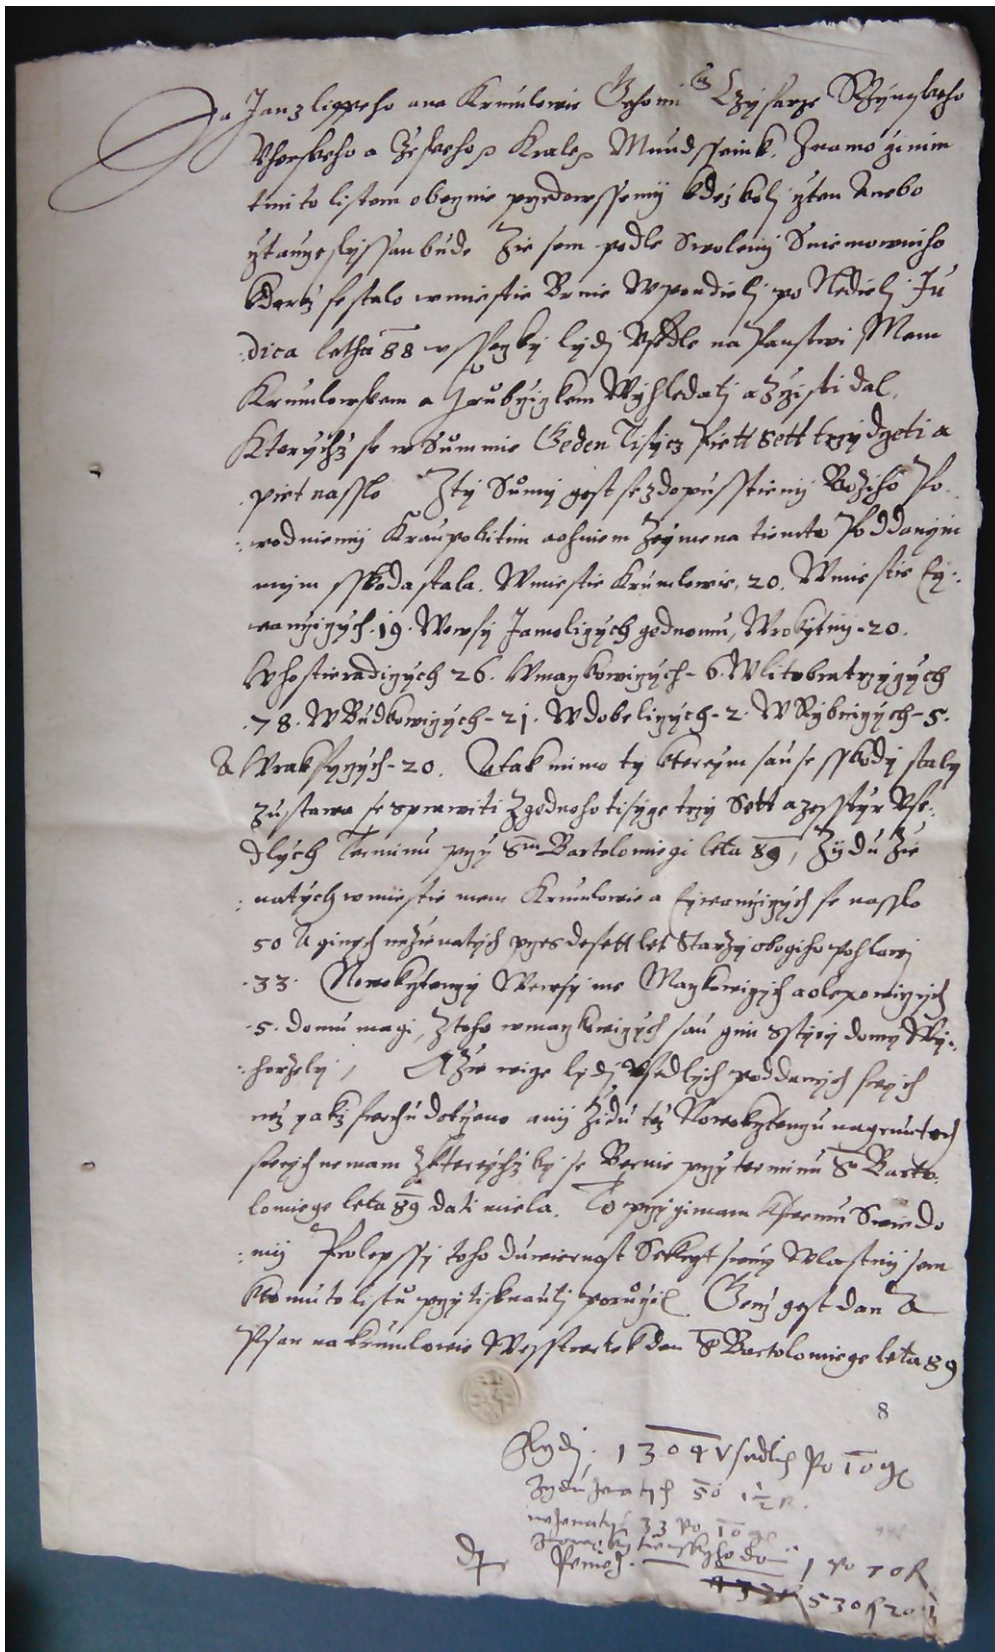 Ja Jan z lippeho ana Krumlowie Geho mi Czysarze Rzymskeho
Vherskeho a Czeskeho Krale Mundssenk. Znamo czinim
timto listem obecznie przedewssemy kdez kolj czten Anebo
cztaucze slyssan bude Zie sem podle Swoleny Sniemowniho
Kderez se stalo w miestie Brnie W pondielj po Nedielj Ju
dica letha 88 wsseczky lydj Vsedle na Panstwi Mem
Krumlowskem a Hrubssiczkem Wyhledatj a Zczisti dal,
Kterychz se w Summie Geden Tisycz Piett Sett trzydczeti a
piet nasslo Z ty Sumy gest se z dopusstieny Boziho Po
wodniemy Krupobitim a ohniem Zeymena tiemto Poddanym
mym sskoda stala. W miestie Krumlowie, 20. W miestie Ey
wanczyczych. 19. We wsy Jamoliczych gednomu, W rokytny - 20.
W hostieradiczych 26. W maykowiczych - 6. W litobratrzyczych
78. W Budkowiczych - 21. W dobeliczych - 2. W Rybniczych - 5.
A W raksyczych - 20. A tak mimo ty kterym sau se sskody staly
zustawa se sprawiti z gednoho tisycze trzy Sett a czsstyr Vse
dlych Terminu przy Sm Bartolomiegi leta 89, Zydu Zie
natych w miestie mem Krumlowie a Eywanczyczych se nasslo
50 A ginych neziienatych przes desett let Starzy obogiho pohlawj
33. Nowokrztenczy We wsy me Maykowiczych a olexowiczych
5. domu magi, Z toho w maykowiczych sau gim Sstyry domy Wy
horzely, A Zie wicze lydj Vsedlych poddanych swych
nez yakz swrchu dotczeno any Zidu tez Nowokrztenczu na gruntech
swych nemam Z kterychz by se Bernie przy terminu S Barto
lomiege leta 89 dati miela. To przygimam k swemu Swiedo
my Pro lepssy toho duwiernost Sekryt swug Wlastny sem
k tomuto listu przytisknautj poruczil Genz gest dan A
Psan na Krumlowie We sstwrtek den S Bartolomiege leta 89
8
lydj. 1304 vsedlych po 10 g
Zydu zenatych 50 1½ R.
nezenatych 33 po 10 g
1 po 10 R
530 R 20